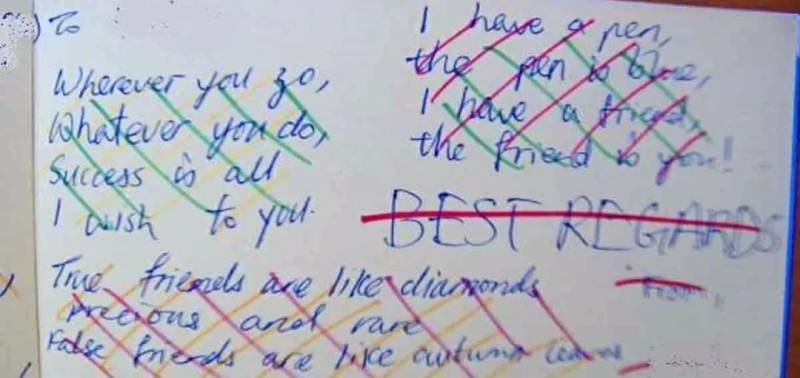 To
Wherever you go,
Whatever you do,
Success is all
I wish to you.
I have a pen,
the pen is blue,
I have a friend,
the friend is you!
BEST REGARDS
True friends are like diamonds
precious and rare
False friends are like autumn leaves
From,